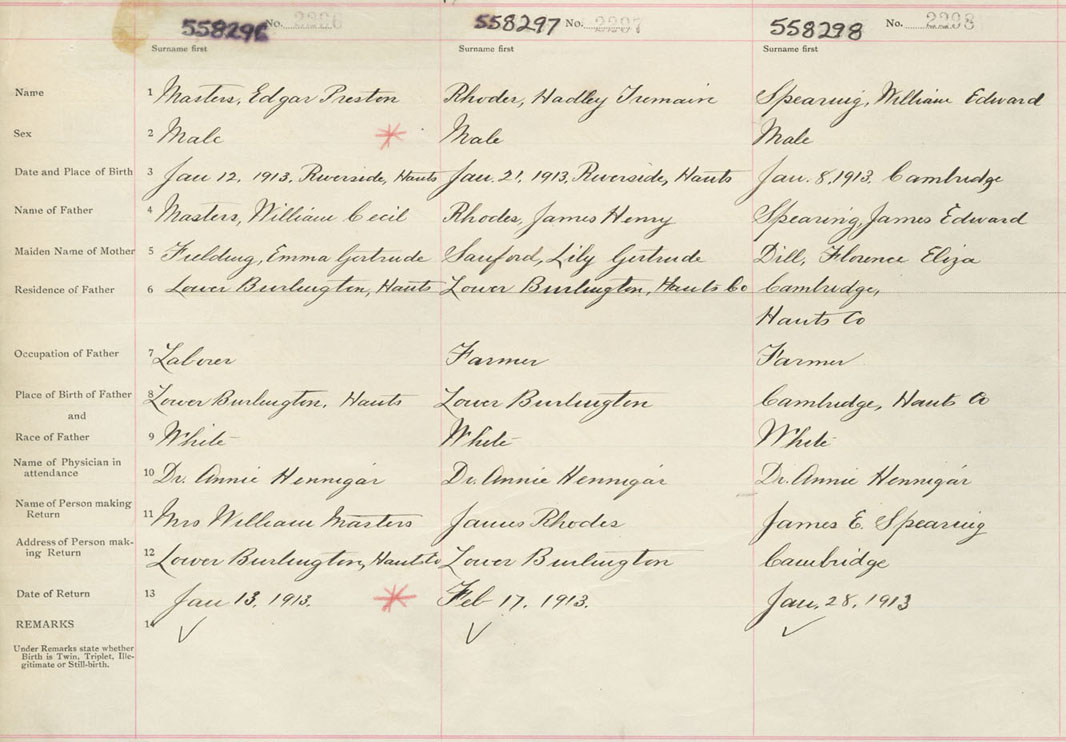 558296 No. 2296 558297 No. 2297 558298 No. 2298
Surname first Surname first Surname first
Name 1 Masters, Edgar Preston Rhodes, Hadley Tremaine Spearing, William Edward
Sex 2 Male Male Male
Date and Place of Birth 3 Jan 12, 1913, Riverside, Hants Jan. 21, 1913, Riverside, Hants Jan. 8, 1913, Cambridge
Name of Father 4 Masters, William Cecil Rhodes, James Henry Spearing, James Edward
Maiden Name of Mother 5 Fielding, Emma Gertrude Sanford, Lily Gertrude Dill, Florence Eliza
Residence of Father 6 Lower Burlington, Hants Lower Burlington, Hants Co Cambridge,
Hants Co
Occupation of Father 7 Laborer Farmer Farmer
Place of Birth of Father 8 Lower Burlington, Hants Lower Burlington Cambridge, Hants Co
and
Race of Father 9 White White White
Name of Physician in
attendance 10 Dr. Annie Hennigar Dr. Annie Hennigar Dr. Annie Hennigar
Name of Person making
Return 11 Mrs William Masters James Rhodes James E. Spearing
Address of Person mak-
ing Return 12 Lower Burlington, Hants Co Lower Burlington Cambridge
Date of Return 13 Jan 13, 1913. Feb 17, 1913. Jan. 28, 1913
REMARKS 14
Under Remarks state whether
Birth is Twin, Triplet, Ille-
gitimate or Still-birth.